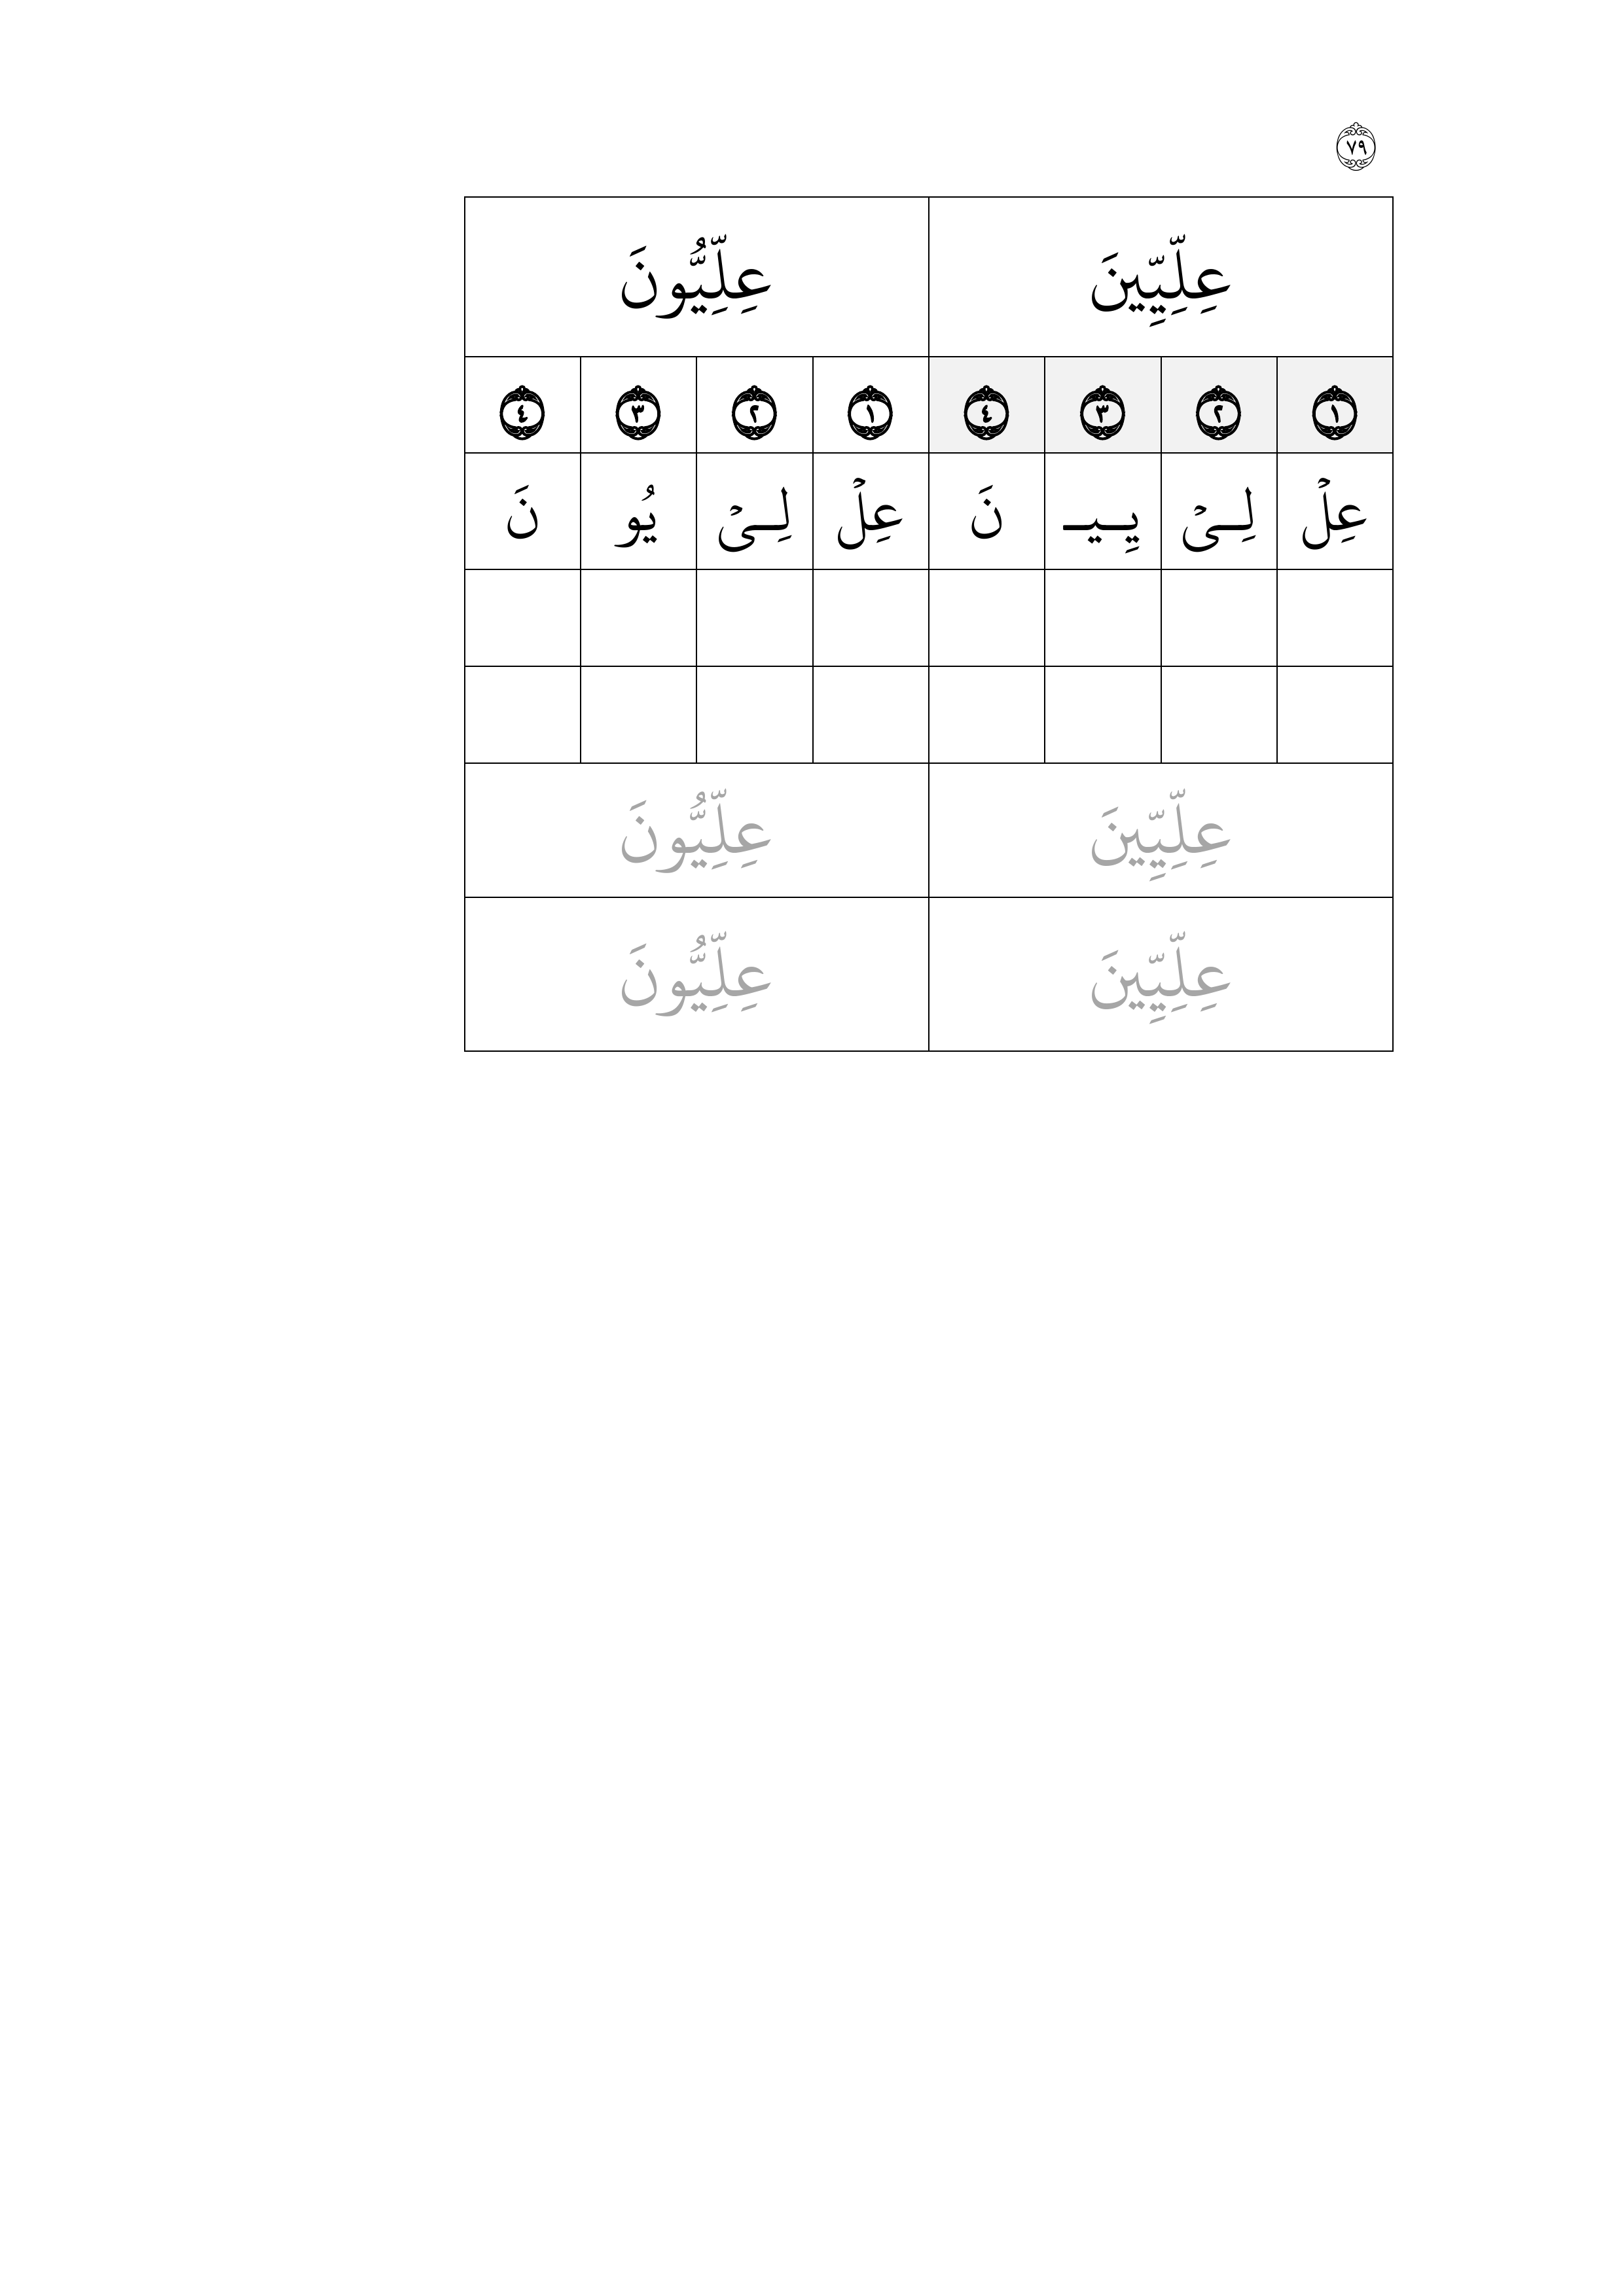 ٧٩
عِلِّيِّينَ عِلِّيُّونَ
١ ٢ ٣ ٤ ١ ٢ ٣ ٤
عِلۡ لِــىۡ يِــيــ نَ عِلۡ لِــىۡ يُو نَ
عِلِّيِّينَ عِلِّيُّونَ
عِلِّيِّينَ عِلِّيُّونَ